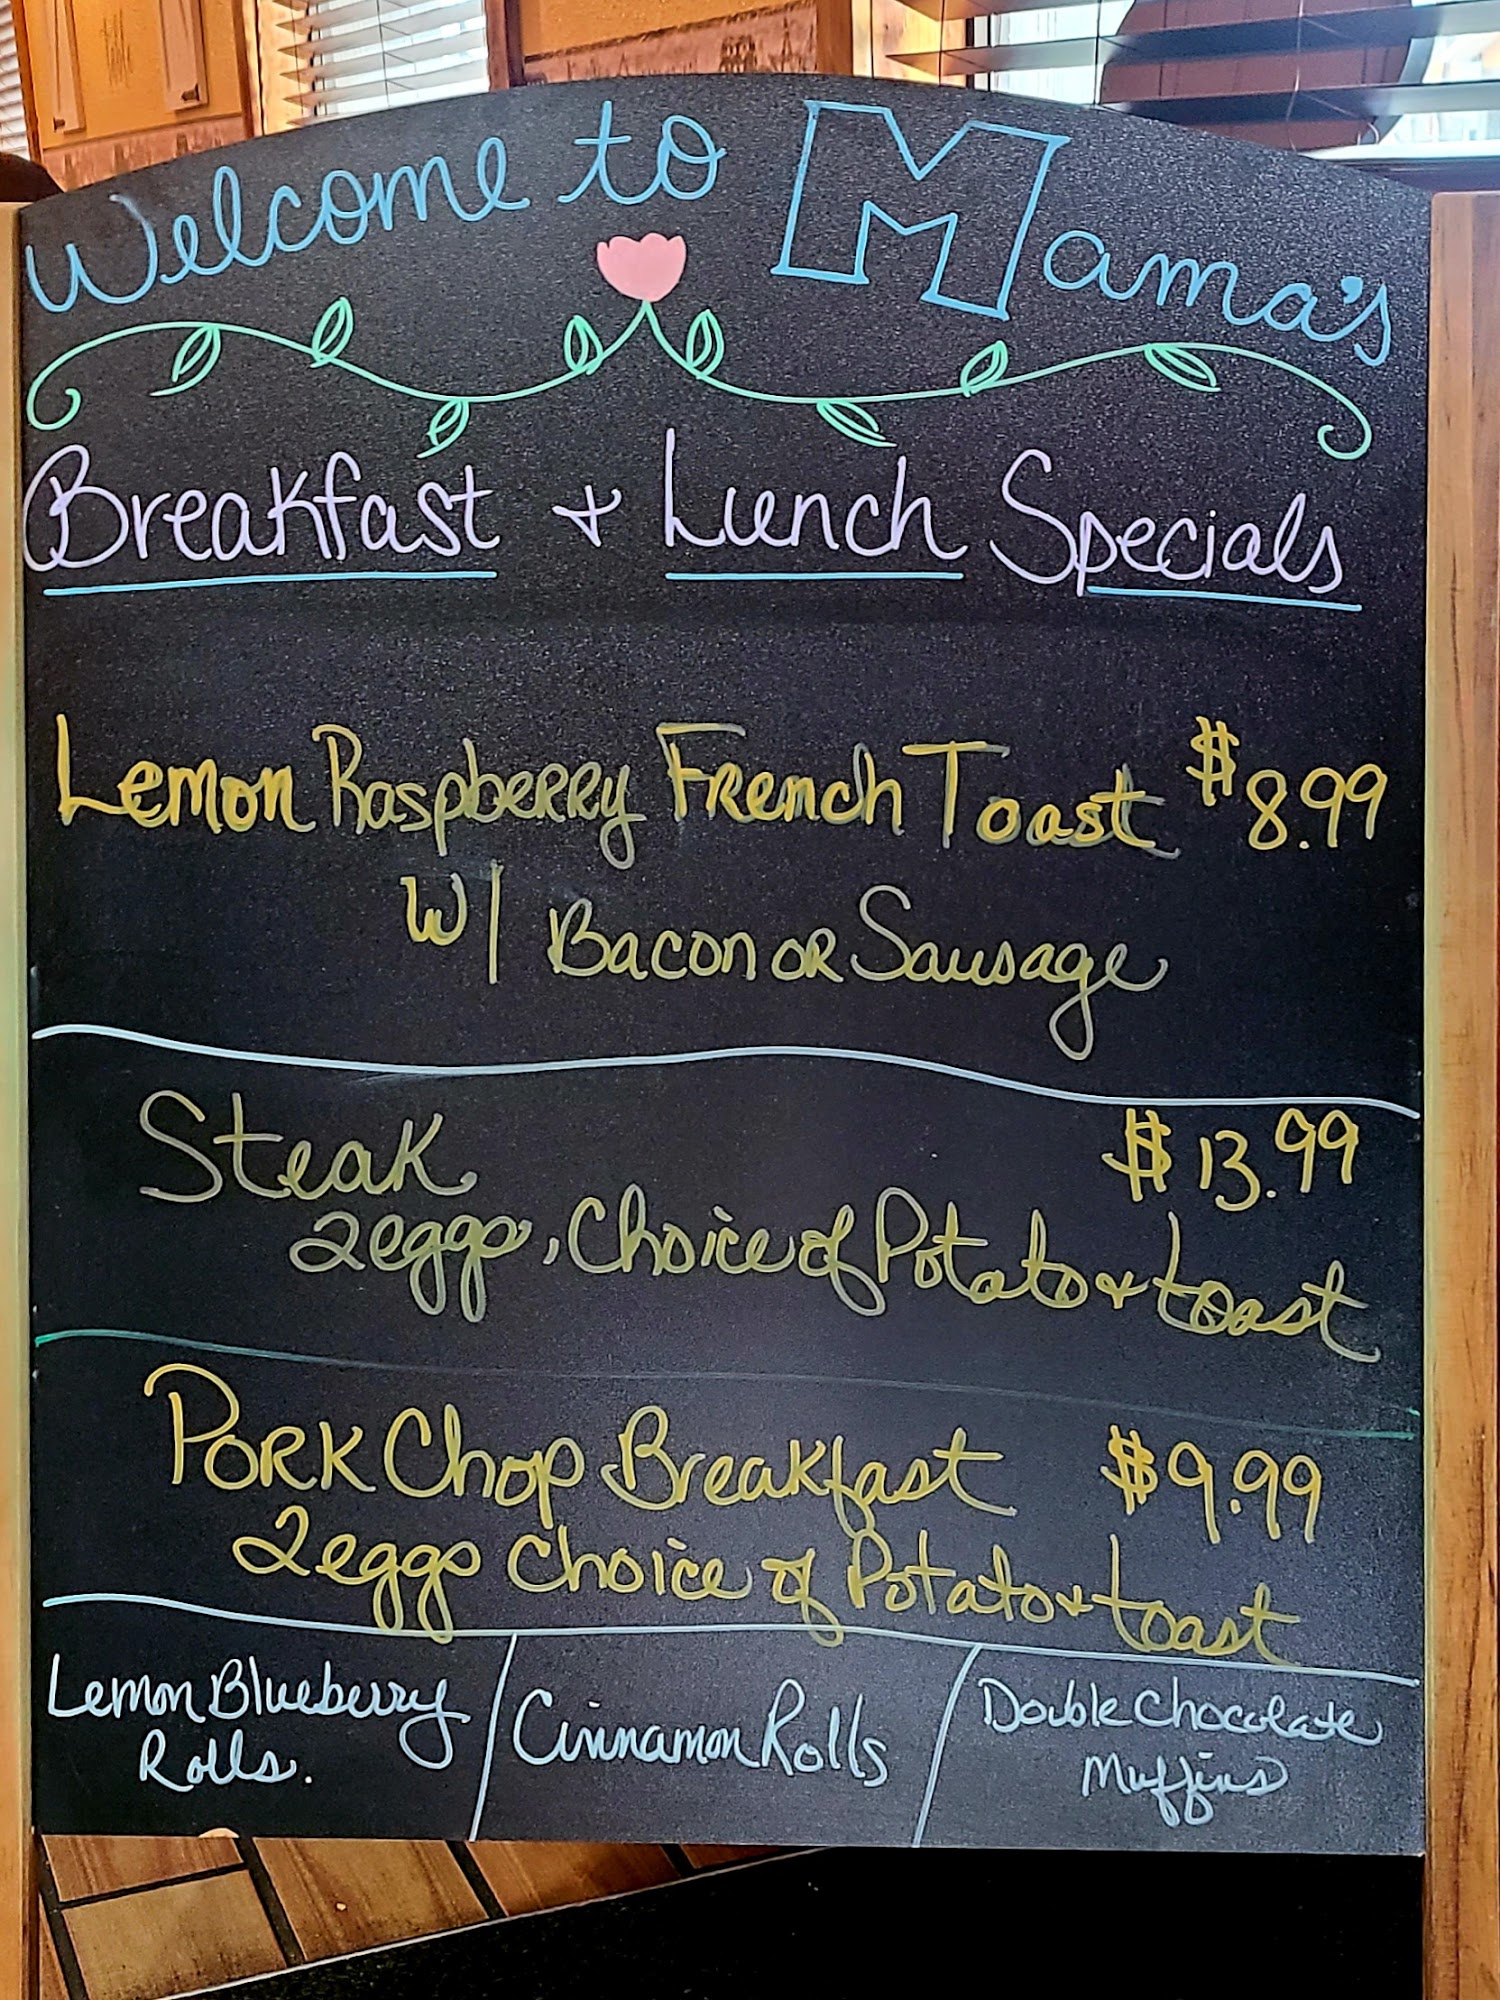 Welcome to Mama's
Breakfast + Lunch Specials
Lemon Raspberry French Toast $8.99
W/ Bacon or Sausage
Steak $13.99
2 eggs, Choice of Potato + toast
Pork Chop Breakfast $9.99
2 eggs choice of Potato + toast
Lemon Blueberry
Rolls.
Cinnamon Rolls
Double Chocolate
Muffins